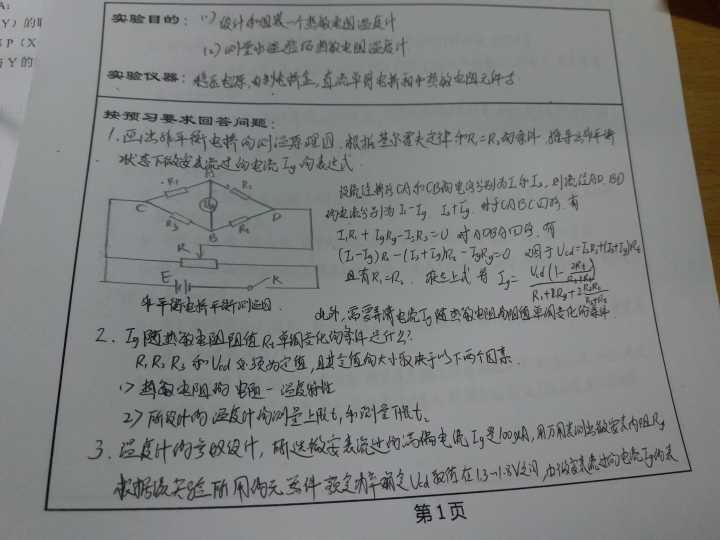 A:
Y）的
P（X
Y的
实验目的：(1) 设计和组装一个热敏电阻温度计
(2) 测量 热敏电阻温度计
实验仪器：稳压电源，直流单臂电桥和热敏电阻元件
按预习要求回答问题：
1. 画出非平衡电桥的测温原理图。根据基尔霍夫定律和R₁=R₂的条件，推导出非平衡
状态下微安表流过的电流Ig的表达式。
R₁ R₂
C B D
R₃ Rt
R
E K
非平衡电桥平衡测温图
设流过 CA和CB的电流分别为I₁和I₂，则流过AD、BD
的电流分别为I₁-Ig、I₂+Ig 对于CABC回路，有
I₁R₁+IgRg-I₂R₃=0 对ADBA回路，有
(I₁-Ig)R₂-(I₂+Ig)Rt-IgRg=0 由于Ucd=I₂R₃+(I₂+Ig)Rt
且有R₁=R₂，求上式得 Ig=
此外，需要弄清电流Ig随热敏电阻的阻值单调变化的条件
2. Ig随热敏电阻阻值Rt单调变化的条件是什么？
R₁ R₂ R₃ 和Ucd必须为定值，且其定值的大小取决于以下两个因素
1) 热敏电阻的电阻-温度特性
2) 所设计的温度计的测量上限t₁和测量下限t₂
3. 温度计的参数设计，所选微安表流过的满偏电流Ig是100μA，用万用表测出微安表内阻Rg
根据该实验所用的元器件 确定Ucd取值在1.3-1.8V之间，由微安表流过的电流Ig的表
第1页